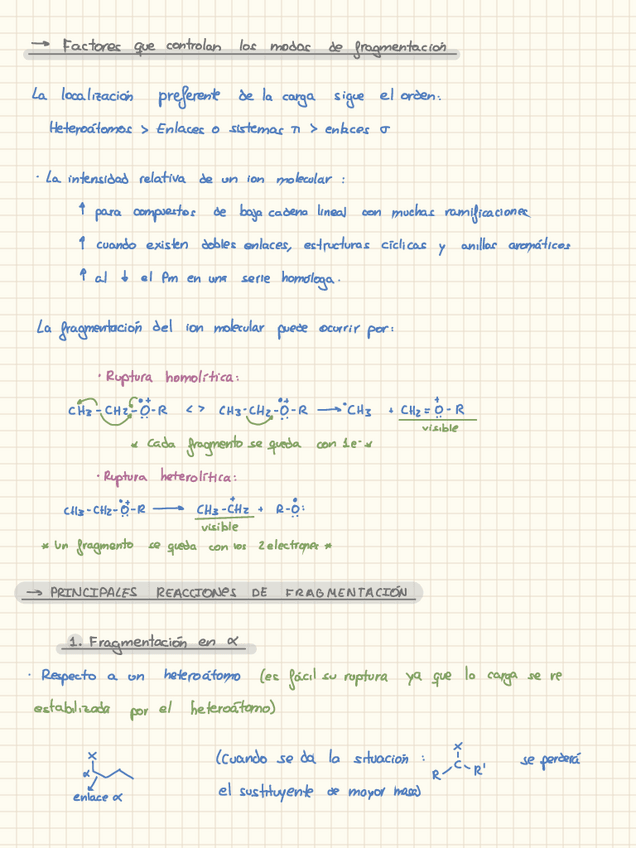 → Factores que controlan los modos de fragmentación
La localización preferente de la carga sigue el orden:
Heteroátomos > Enlaces o sistemas π > enlaces σ
· La intensidad relativa de un ion molecular :
↑ para compuestos de baja cadena lineal con muchas ramificaciones
↑ cuando existen dobles enlaces, estructuras cíclicas y anillos aromáticos
↑ al ↓ el Pm en una serie homóloga.
La fragmentación del ion molecular puede ocurrir por:
· Ruptura homolítica:
CH3 - CH2 - Ö+ - R <> CH3 - CH2 - Ö+ - R → ·CH3 + CH2 = O+ - R
visible
* Cada fragmento se queda con 1e- *
· Ruptura heterolítica:
CH3 - CH2 - Ö+ - R → CH3 - CH2+ + R - Ö:
visible
* Un fragmento se queda con los 2 electrones *
→ PRINCIPALES REACCIONES DE FRAGMENTACIÓN
1. Fragmentación en α
· Respecto a un heteroátomo (es fácil su ruptura ya que la carga se ve
estabilizada por el heteroátomo)
X
α
enlace α
(Cuando se da la situación : X C R R' se perderá
el sustituyente de mayor masa)